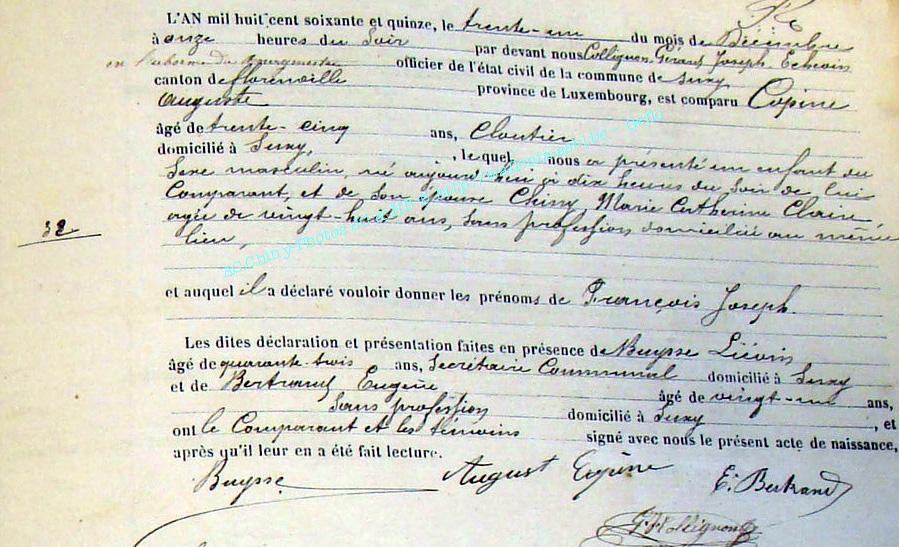 L'AN mil huit cent soixante et quinze, le trente-un du mois de Décembre
à onze heures du Soir par devant nous Collignon Gérard Joseph Echevin
en l'absence du Bourgmestre officier de l'état civil de la commune de Suxy
canton de florenville province de Luxembourg, est comparu Copine
Auguste
âgé de trente-cinq ans, Cloutier
domicilié à Suxy, , lequel nous a présenté un enfant du
Sexe masculin, né aujourd'hui à dix heures du Soir de lui
Comparant, et de Son épouse Chiny Marie Catherine Claire
agée de vingt-huit ans, Sans profession domiciliée au même
lieu,
32
et auquel il a déclaré vouloir donner les prénoms de François Joseph.
Les dites déclaration et présentation faites en présence de Buysse Liévin
âgé de quarante-trois ans, Secrétaire Communal domicilié à Suxy
et de Bertrand Eugène âgé de vingt-un ans,
Sans profession domicilié à Suxy , et
ont le Comparant et les témoins signé avec nous le présent acte de naissance,
après qu'il leur en a été fait lecture.
Buysse August Copine E. Bertrand
GJCollignon